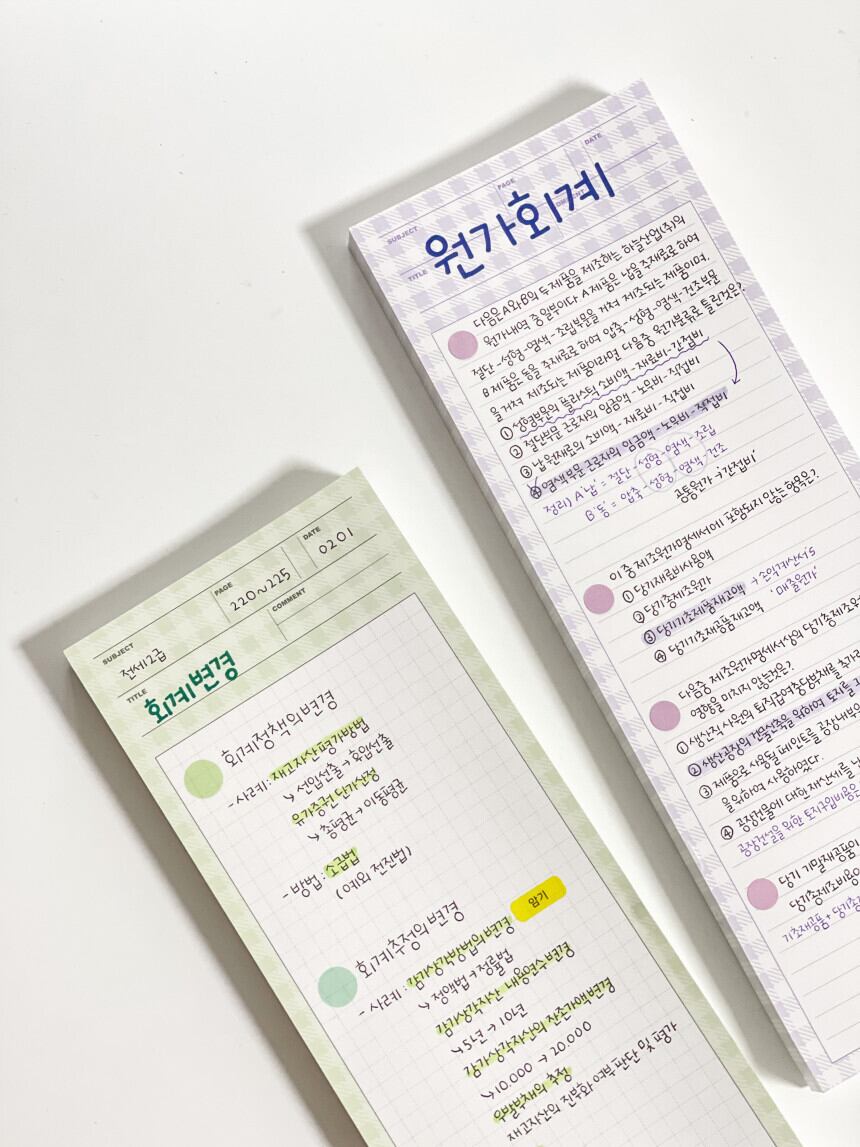 SUBJECT
전세2급
PAGE
220~225
DATE
0201
TITLE
회계변경
COMMENT
회계정책의 변경
- 사례 : 재고자산평가방법
↳ 선입선출 → 후입선출
유가증권 단가산정
↳ 총평균 → 이동평균
- 방법 : 소급법
(예외 전진법)
회계추정의 변경
암기
- 사례 : 감가상각방법의 변경
↳ 정액법 → 정률법
감가상각자산 내용연수 변경
↳ 5년 → 10년
감가상각자산의 잔존가액 변경
↳ 10.000 → 20.000
우발부채의 추정
재고자산의 진부화 여부 판단 및 평가
SUBJECT
PAGE
DATE
TITLE
원가회계
다음은 A와 B의 두 제품을 제조하는 하늘산업(주)의
원가내역 중 일부이다. A제품은 납을 주재료로 하여
절단-성형-염색-조립부문을 거쳐 제조되는 제품이며,
B제품은 동을 주재료로 하여 압축-성형-염색-건조부문
을 거쳐 제조되는 제품이라면 다음중 원가분류로 틀린것은?
① 성형부문의 플라스틱 소비액 - 재료비 - 간접비
② 절단부문 근로자의 임금액 - 노무비 - 직접비
③ 납 원재료의 소비액 - 재료비 - 직접비
④ 염색부문 근로자의 임금액 - 노무비 - 직접비
정리) A '납' = 절단 - 성형 - 염색 - 조립
B '동' = 압축 - 성형 - 염색 - 건조
공통원가 → '간접비'
이 중 제조원가명세서에 포함되지 않는 항목은?
① 당기재료비사용액
② 당기총제조원가
③ 당기기초제품재고액 → 손익계산서 S
④ 당기기초재공품재고액 '매출원가'
다음중 제조원가명세서상의 당기총제조원
영향을 미치지 않는것은?
① 생산직 사원의 퇴직급여충당부채를 추가로
② 생산공장의 건물신축을 위하여 토지를
③ 제품으로 사용될 페인트를 공장내부
을 위하여 사용하였다.
④ 공장건물에 대한 재산세를
공장건설을 위한 토지구입비용은
당기 기말재공품이
당기총제조비용
기초재공품 + 당기총